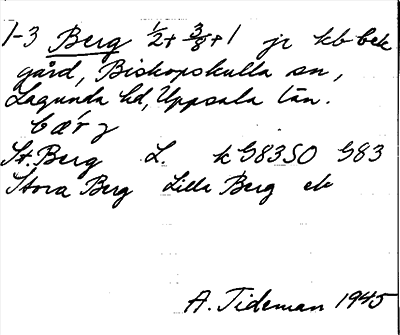 1-3 Berg ½+ 3/8+1 jr kb bek
gård, Biskopskulla sn,
Lagunda hd, Uppsala län.
bær̡
St. Berg L. k G8350 G83
Stora Berg Lilla Berg ek
A. Tideman 1945